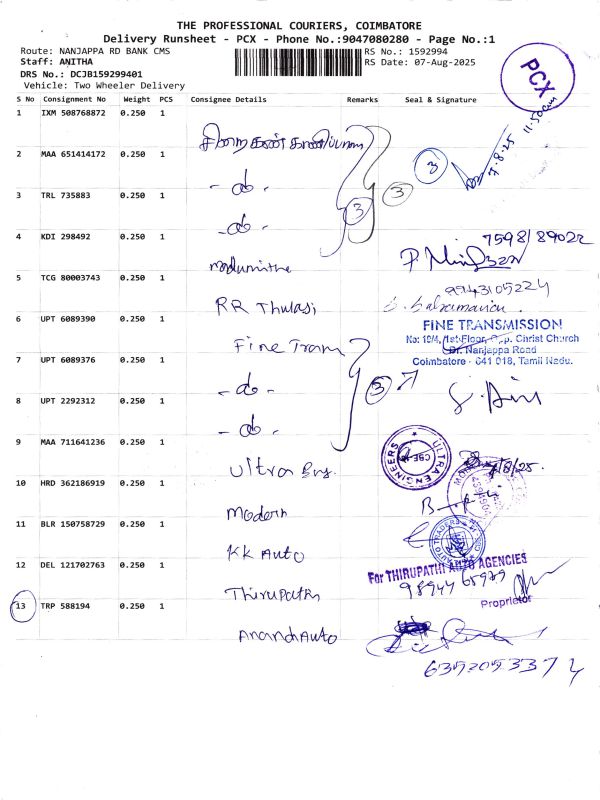 THE PROFESSIONAL COURIERS, COIMBATORE
Delivery Runsheet - PCX - Phone No.:9047080280 - Page No.:1
Route: NANJAPPA RD BANK CMS
RS No.: 1592994
Staff: ANITHA
RS Date: 07-Aug-2025
DRS No.: DCJB159299401
Vehicle: Two Wheeler Delivery
PCX
S No Consignment No Weight PCS Consignee Details Remarks Seal & Signature
11:50am
1 IXM 508768872 0.250 1
2 MAA 651414172 0.250 1
3 7.8.25
- do -
3 TRL 735883 0.250 1
3 3
- do -
4 KDI 298492 0.250 1
7598189022
madumitha
5 TCG 80003743 0.250 1
9943105224
RR Thulasi
6 UPT 6089390 0.250 1
FINE TRANSMISSION
Fine Tram
No: 19/4, 1st Floor, Opp. Christ Church
Dr. Nanjappa Road
7 UPT 6089376 0.250 1
Coimbatore - 641 018, Tamil Nadu.
- do -
3
8 UPT 2292312 0.250 1
- do -
9 MAA 711641236 0.250 1
ULTRA ENGINEERS
CBE
Ultra Eng.
10 HRD 362186919 0.250 1
Modern
11 BLR 150758729 0.250 1
AUTO TRADERS
KK Auto
12 DEL 121702763 0.250 1
For THIRUPATHI AUTO AGENCIES
98944 65979
Thirupathi
Proprietor
13 TRP 588194 0.250 1
Anandh Auto
6352053374